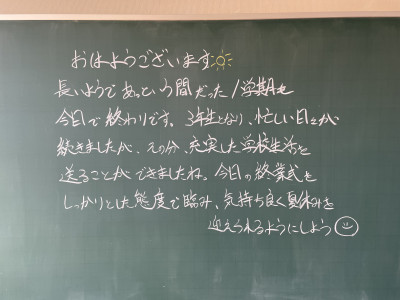 おはようございます
長いようであっという間だった1学期も
今日で終わりです。3年生となり、忙しい日々が
続きましたが、その分、充実した学校生活を
送ることができましたね。今日の終業式を
しっかりとした態度で臨み、気持ち良く夏休みを
迎えられるようにしよう